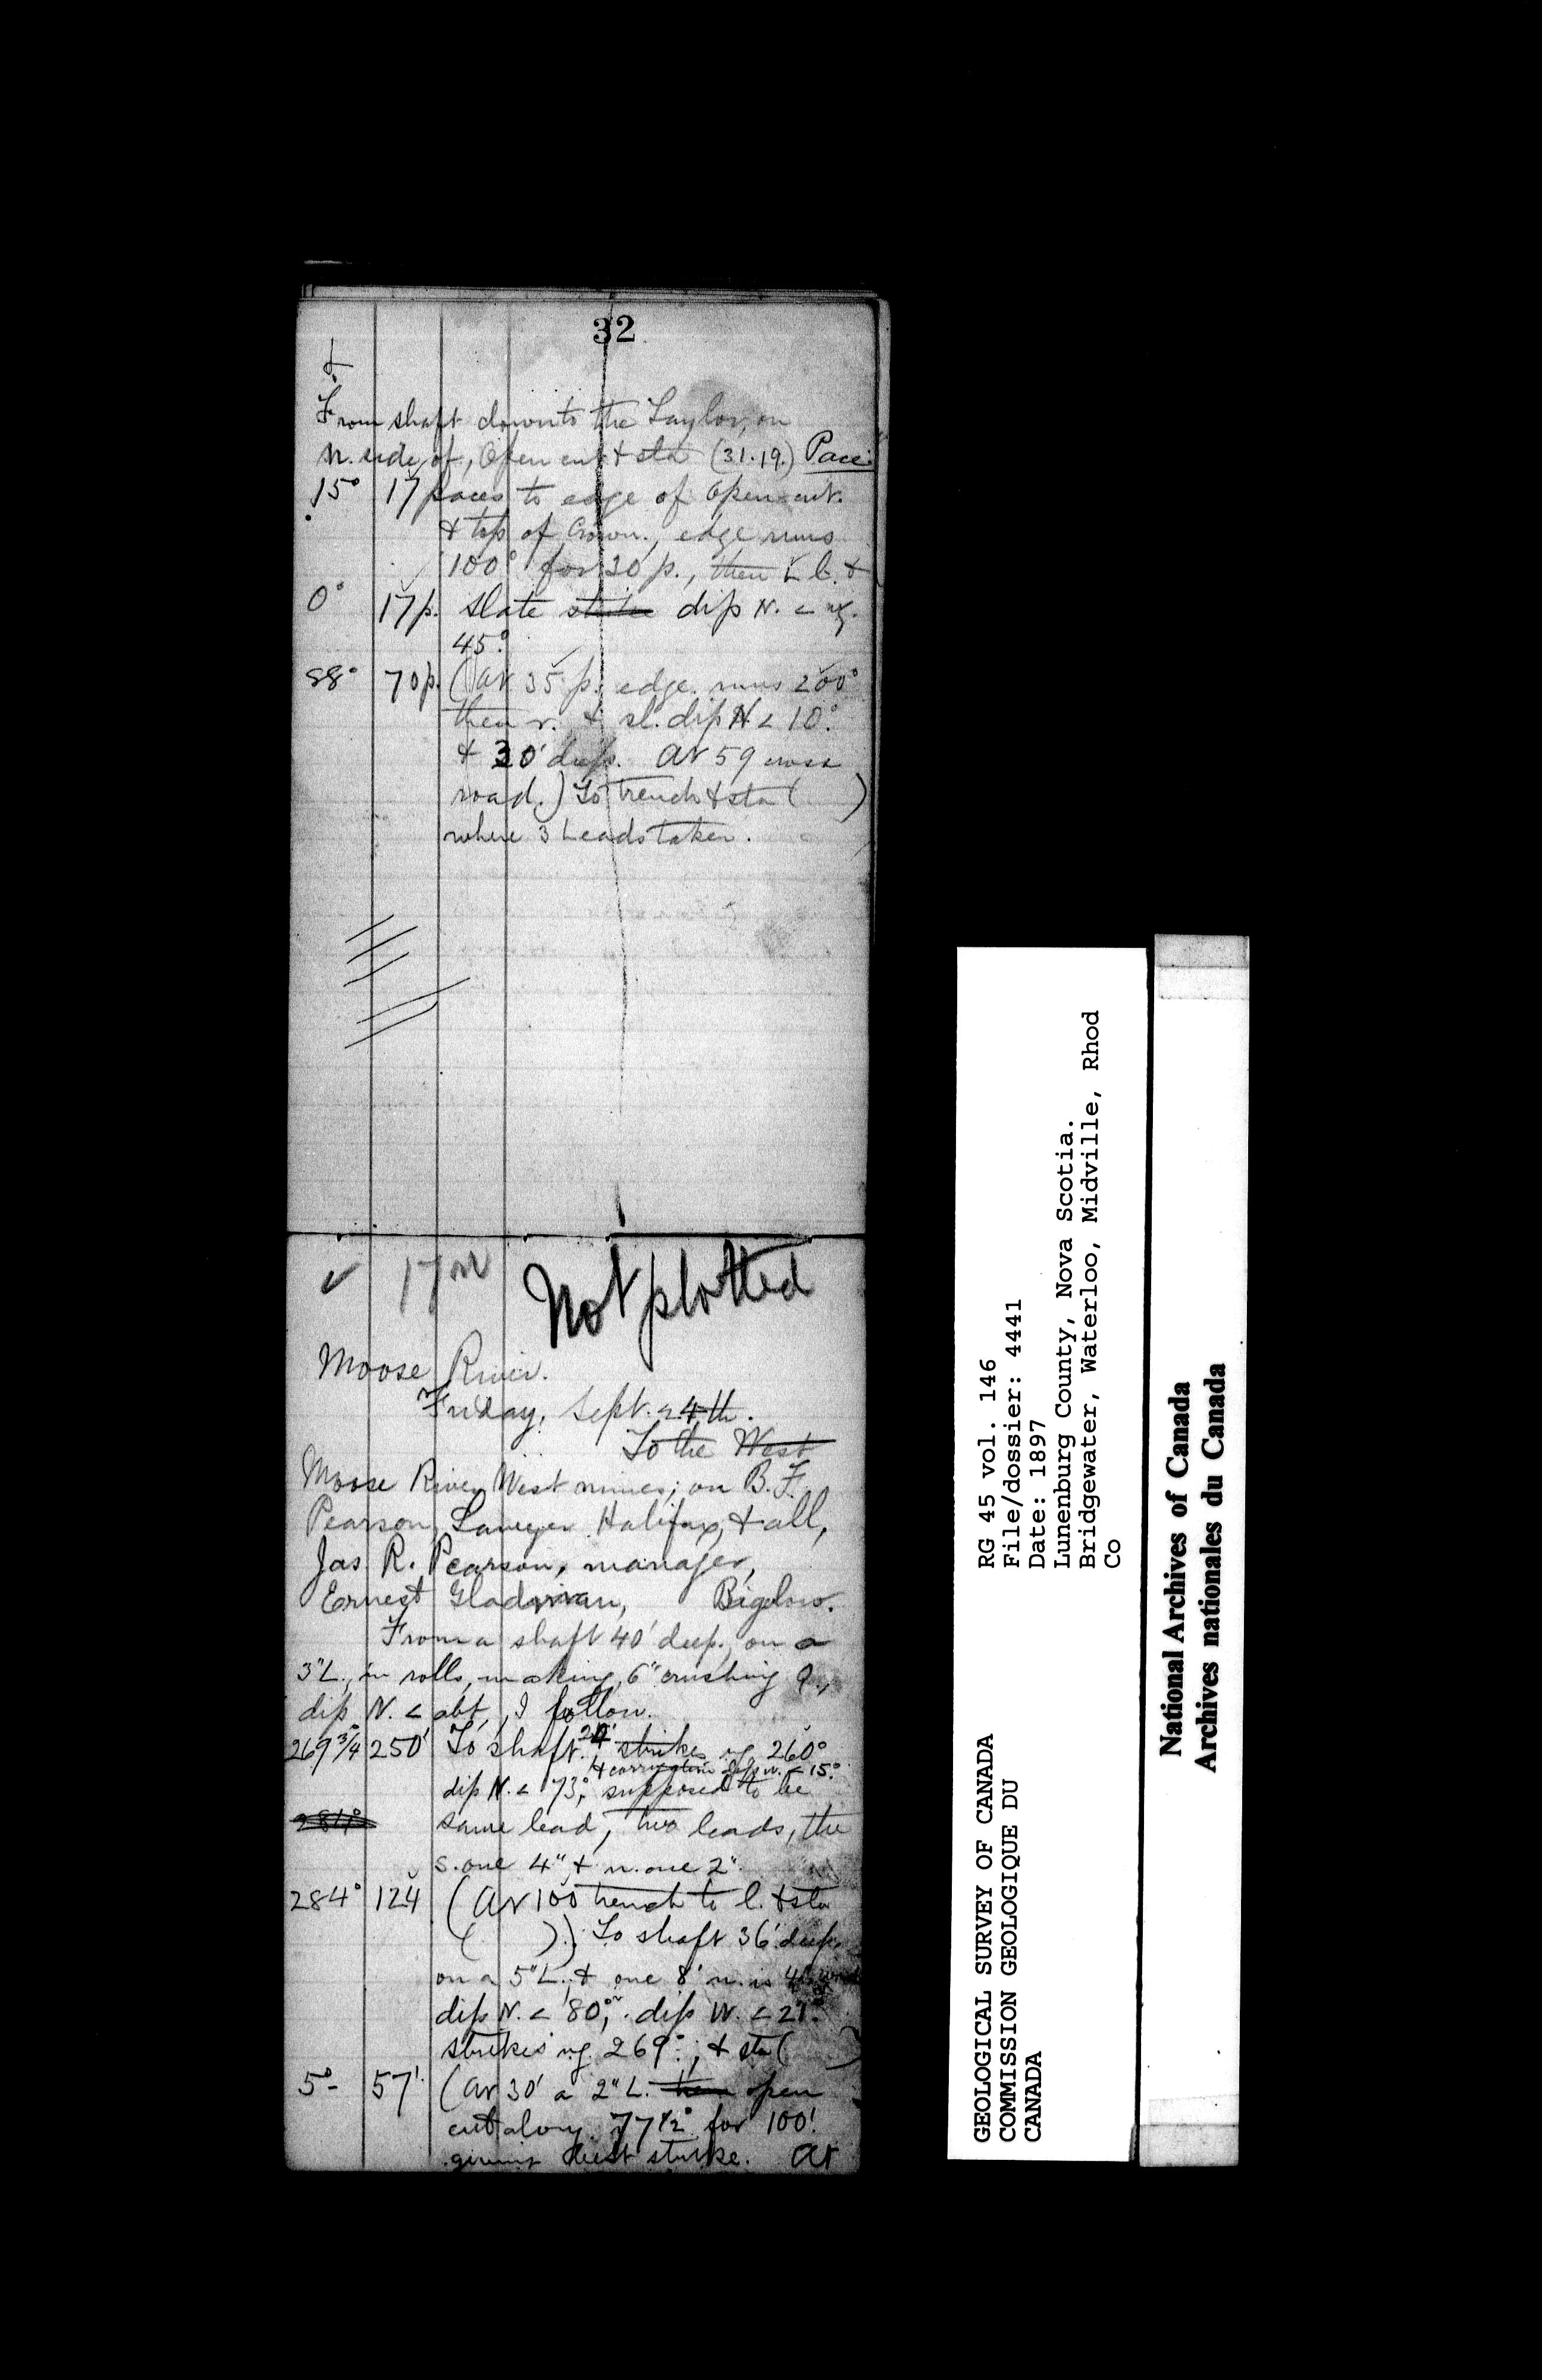 32
&
From shaft down to the Taylor, on
N. side of, Open cut & sta (31.19.) Pace
15° 17 paces to edge of Open cut.
& top of Crown., edge runs
100° for 30 p., then L l. &
0° 17 p. slate dip N. < ng.
45°.
88° 70 p. (At 35 p. edge runs 200°
then r. & sl. dip N. < 10°.
& 30' deep. At 59 cross
road.) To trench & sta ( )
where 3 Leads taken.
17 M Not plotted
Moose River.
Friday, Sept. 24th.
To the West
Moose River West mines; on B. F.
Pearson, Lawyer Halifax, & all,
Jas. R. Pearson, manager,
Ernest Gladwin, Bigelow.
From a shaft 40' deep, on a
3" L., in rolls, making 6" crushing Q.,
dip N. < abt, I follow.
269 3/4° 250' To shaft. 24' strikes ng. 260°
& corrugation dips W. < 15°.
dip N. < 73°, supposed to be
284° same lead, two leads, the
s. one 4" & n. one 2".
284° 124 (At 100 trench to l. & sta
( )). To shaft 36' deep.
on a 5" L. & one 8' n. is
dip N. < 80°, dip W. < 21°.
strikes ng. 269°.; & sta ( )
5° 57'. (At 30' a 2" L. open
cut along 77 1/2° for 100'.
giving best strike. At
GEOLOGICAL SURVEY OF CANADA
COMMISSION GEOLOGIQUE DU
CANADA
RG 45 vol. 146
File/dossier: 4441
Date: 1897
Lunenburg County, Nova Scotia.
Bridgewater, Waterloo, Midville, Rhod
Co
National Archives of Canada
Archives nationales du Canada